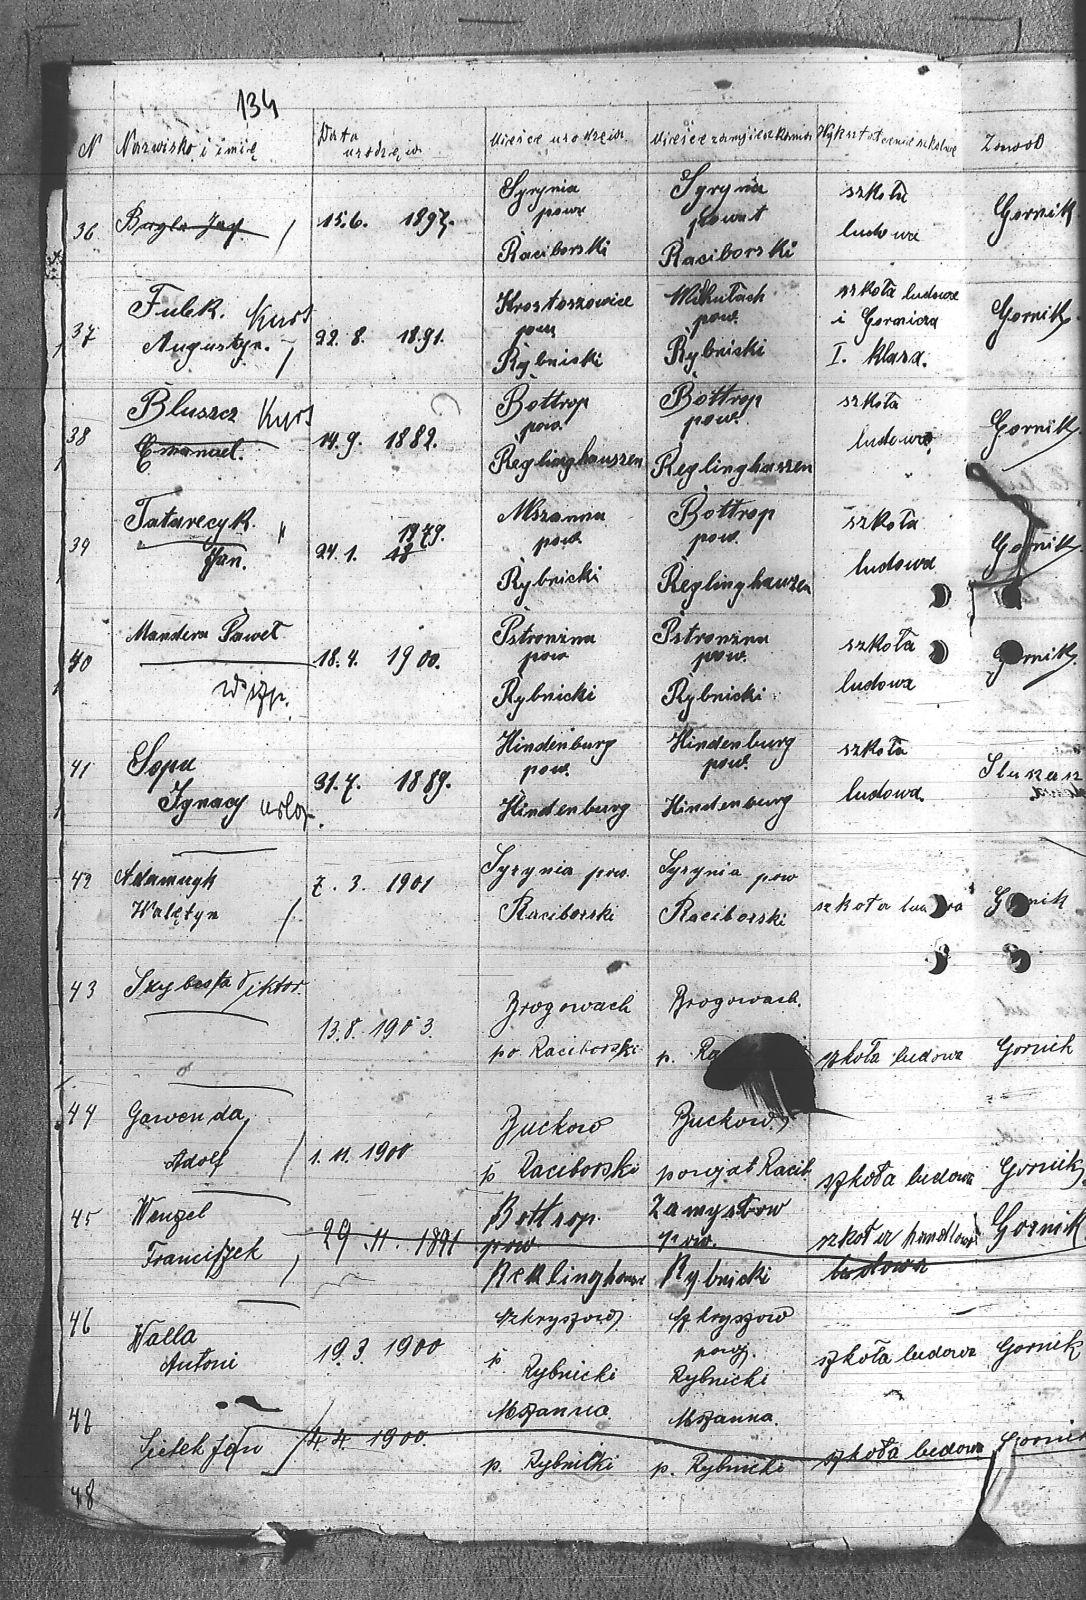 134
N Nazwisko i imię Data urodzęia Mieśce urodzęia Mieśce zamjieszkania Wykształcenie szkolne Zawod
36 Bugla Jag. 15.6. 1897. Syrynia powr Raciborski Syrynia powat Raciborski szkoła ludowa Gornik
37 Fulek. Kurs Augustyn. 22. 8. 1891. Krostoszowice pow Rybniski Mikułach pow. Rybniski szkoła ludowa i Gornicza I. klasa. Gornik.
38 Bluszcz Kurs Emanuel. 14. 9. 1882. Bottrop pow. Reglinghauszen Bottrop pow. Reglinghaszen szkoła ludowa. Gornik.
39 Tatarczyk. " Jan. 24. 1. 1979. 18 Mszanna pow. Rybnicki Bottrop pow. Reglinghauzen szkoła ludowa Gornik.
40 Mandera Paweł 18. 4. 1900. Pstronzna pow Rybnicki Pstronzna pow. Rybnicki szkoła ludowa Gornik.
41 Sopa Ignacy urlop. 31. 7. 1889. Hindenburg pow. Hindenburg Hindenburg pow. Hindenburg szkoła ludowa.
42 Adamczyk Walętyn 7. 3. 1901 Syrynia pow. Raciborski Syrynia pow Raciborski szkoła ludowa Gornik
43 Szybesta Wiktor 13.8. 1903. Brogowach po Raciborski Brogowach. p. szkoła ludowa Gornik
44 Gawenda Adolf 1. 11. 1900 Zuckow p Raciborski Zuckow powjat Racib. szkoła ludowa Gornik.
45 Wenzel Franciszek 29. 11. 1891 Bottrop. pow Reklinghause Zamysłow pow. Rybnicki szkoła handlowa ludowa Gornik.
46 Walla Antoni 19.3. 1900 Szkryszow p Rybnicki Szkryszow powj. Rybnicki szkoła ludowa Gornik
47 Sitek Jan 4. 4. 1900. Mszanna p. Rybnitki Mszanna p. Rybnicki szkoła ludowa Gornik
48